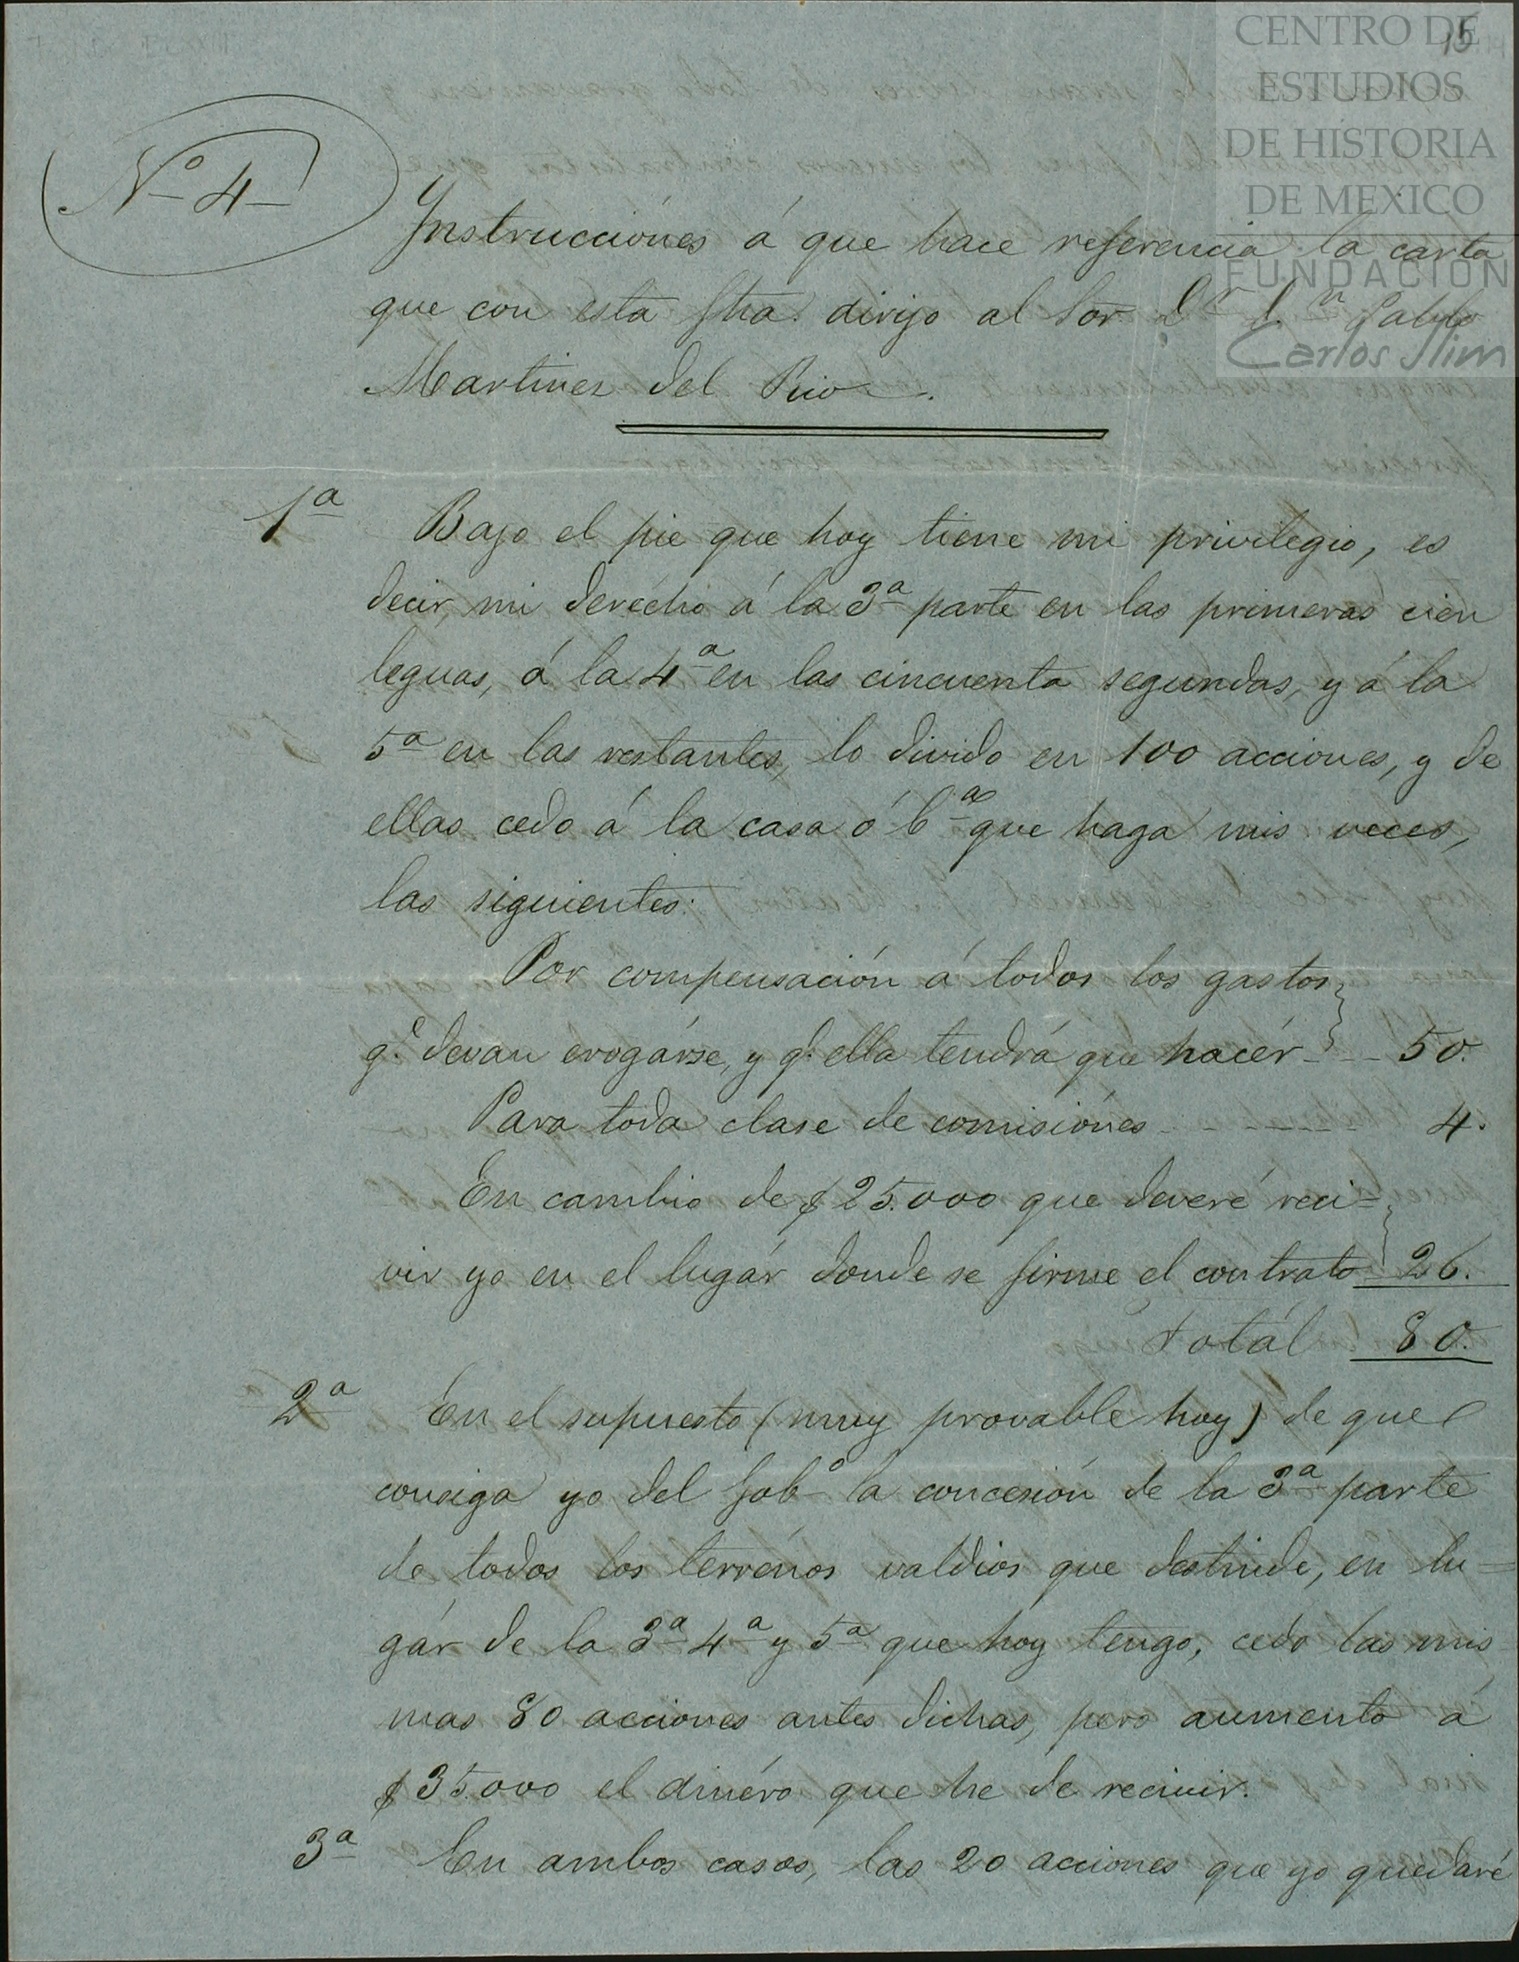 15
CENTRO DE
ESTUDIOS
DE HISTORIA
DE MEXICO
FUNDACIÓN
Carlos Slim
Nº 4
Ynstrucciónes á que hace referencia la carta
que con esta fha. dirijo al Sor. Dn. Pablo
Martinez del Rio.
1ª Bajo el pie que hoy tiene mi privilegio, es
decir, mi derecho á la 3ª parte en las primeras cien
leguas, á la 4ª en las cincuenta segundas, y á la
5ª en las restantes, lo divido en 100 acciones, y de
ellas cedo á la casa ó Cª que haga mis veces,
las siguientes:
Por compensación á todos los gastos
q.e devan erogárse, y q.e ella tendrá que hacér 50.
Para toda clase de comisiónes 4.
En cambio de $25.000 que deveré reci=
vir yo en el lugár donde se firme el contrato 26.
Totál 80.
2ª En el supuesto (muy provable hoy) de que
consiga yo del Gobº la concesión de la 3ª parte
de todos los terrénos valdios que destinde, en lu=
gár de la 3ª 4ª y 5ª que hoy tengo, cedo las mis
mas 80 acciones antes dichas, pero aumento á
$35.000 el dinéro que he de recivir.
3ª En ambos casos, las 20 acciones que yo quedaré